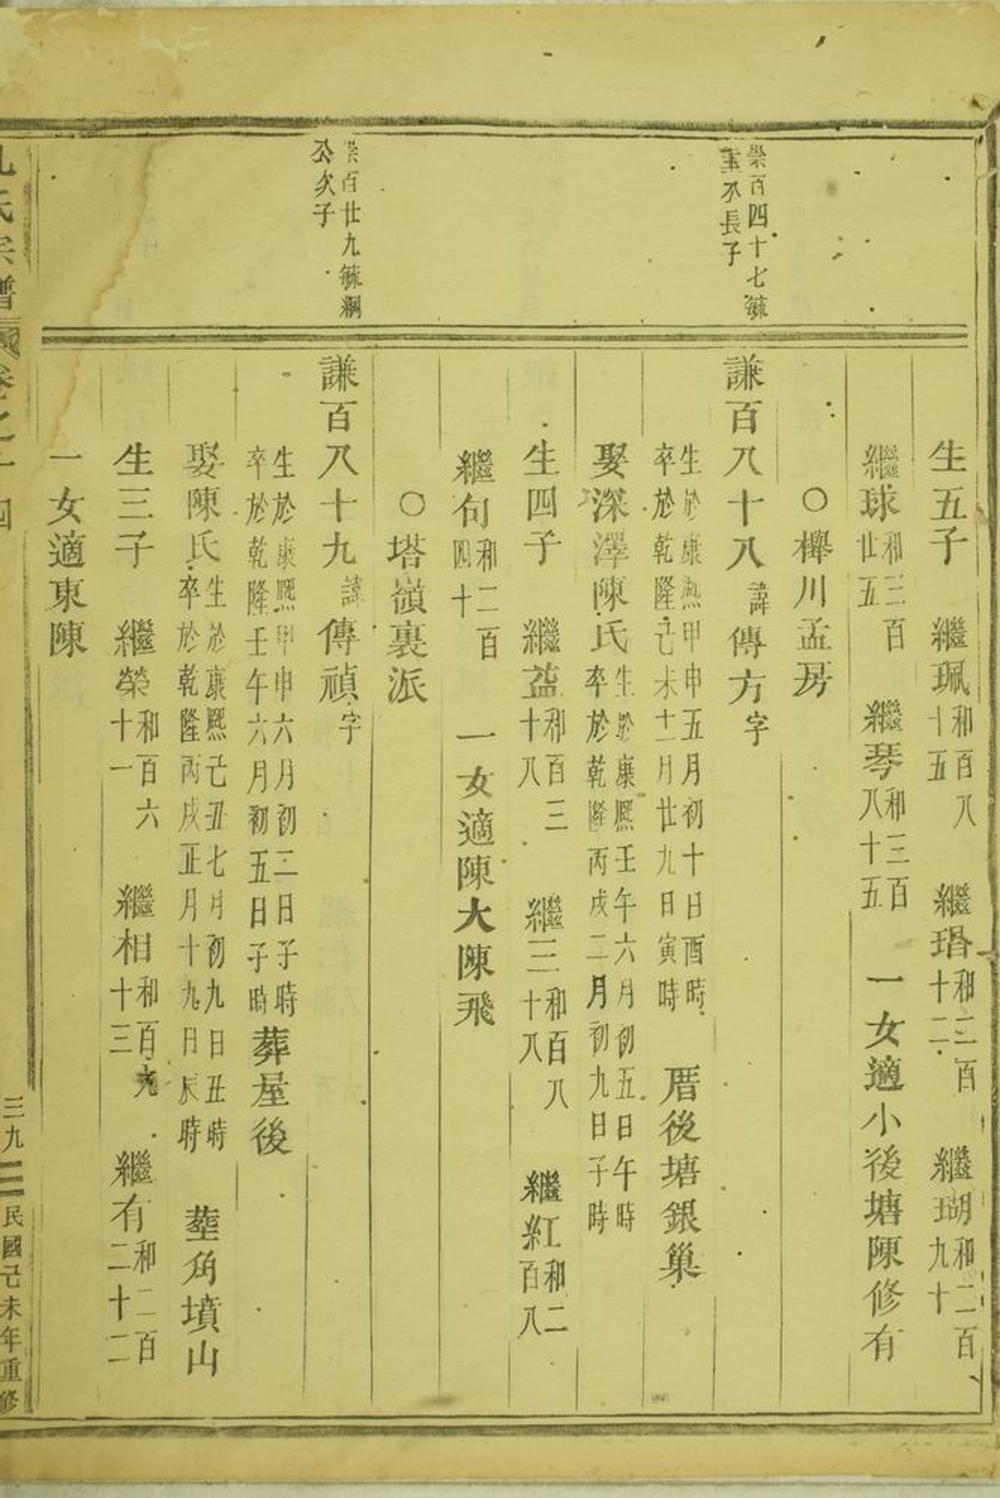 生五子 繼珮和百八十五 繼琩和二百十二 繼瑚和二百九十
繼球和三百廿五 繼琴和三百八十五 一女適小後塘陳修有
○櫸川孟房
崇百四十七毓
圭公長子
謙百八十八諱傳方字
生於康熙甲申五月初十日酉時
卒於乾隆己未十二月廿九日寅時 厝後塘銀巢
娶深澤陳氏生於康熙壬午六月初五日午時
卒於乾隆丙戌二月初九日子時
生四子 繼葢和百三十八 繼三和百八十八 繼紅和二百八
繼旬和二百四十 一女適陳大陳飛
○塔嶺裏派
崇百廿九毓綱
公次子
謙百八十九諱傳禎字
生於康熙甲申六月初二日子時
卒於乾隆壬午六月初五日子時葬屋後
娶陳氏生於康熙己丑七月初九日丑時
卒於乾隆丙戌正月十九日辰時 塟角墳山
生三子 繼榮和百六十一 繼相和百九十三 繼有和二百二十二
一女適東陳
氏宗譜 卷之十四 三九 民國己未年重修